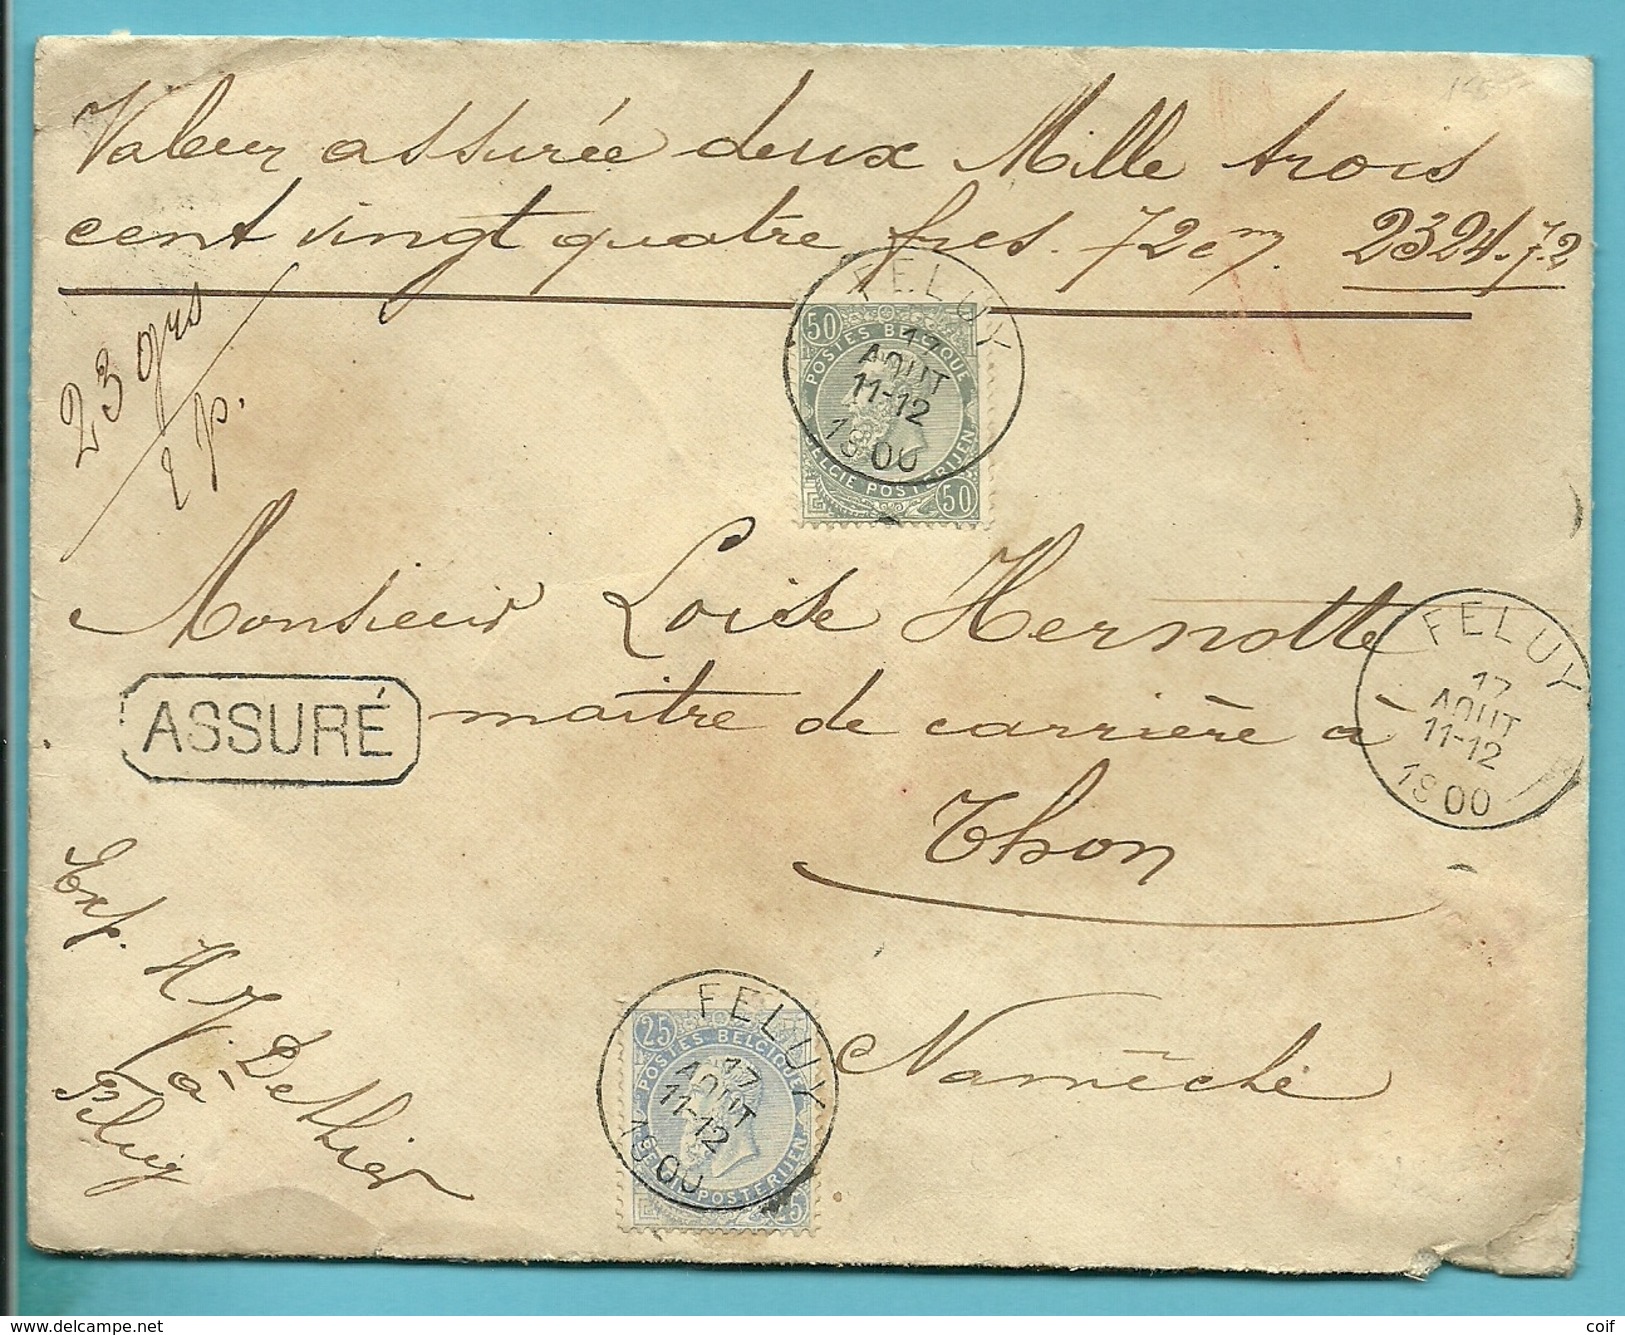 Valeur assurée deux Mille trois
cent vingt quatre frcs. 72 cm. 2324.72
23 grs
2 p.
FELUY
17
AOUT
11-12
1900
50
POSTES BELGIQUE
BELGIE POSTERIJEN
50
Monsieur Loise Hernotte
FELUY
17
AOUT
11-12
1900
ASSURÉ
maitre de carrière à
Thon
Exp.
H J. Dethier
à
Feluy
FELUY
17
AOUT
11-12
1900
25
POSTES BELGIQUE
BELGIE POSTERIJEN
25
Namêche
delcampe.net
coif